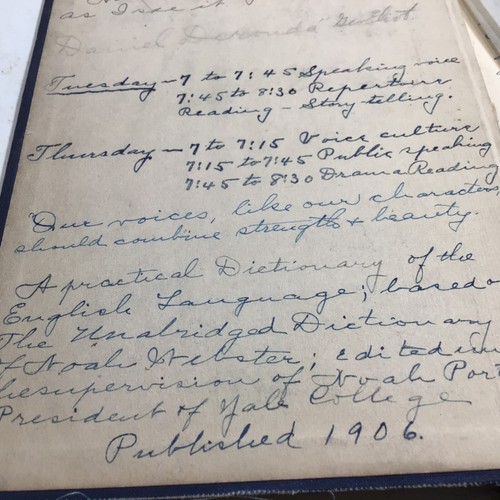 as I
Daniel Deronda" G. Eliot
Tuesday - 7 to 7:45 Speaking voice
7:45 to 8:30 Repertoire
Reading - Story telling.
Thursday - 7 to 7:15 Voice culture
7:15 to 7:45 Public speaking
7:45 to 8:30 Drama Reading
"Our voices, like our characters,
should combine strength & beauty.
A practical Dictionary of the
English Language; based o
The Unabridged Dictionary
of Noah Webster; Edited un
he supervision of Noah Port
President of Yale College
Published 1906.